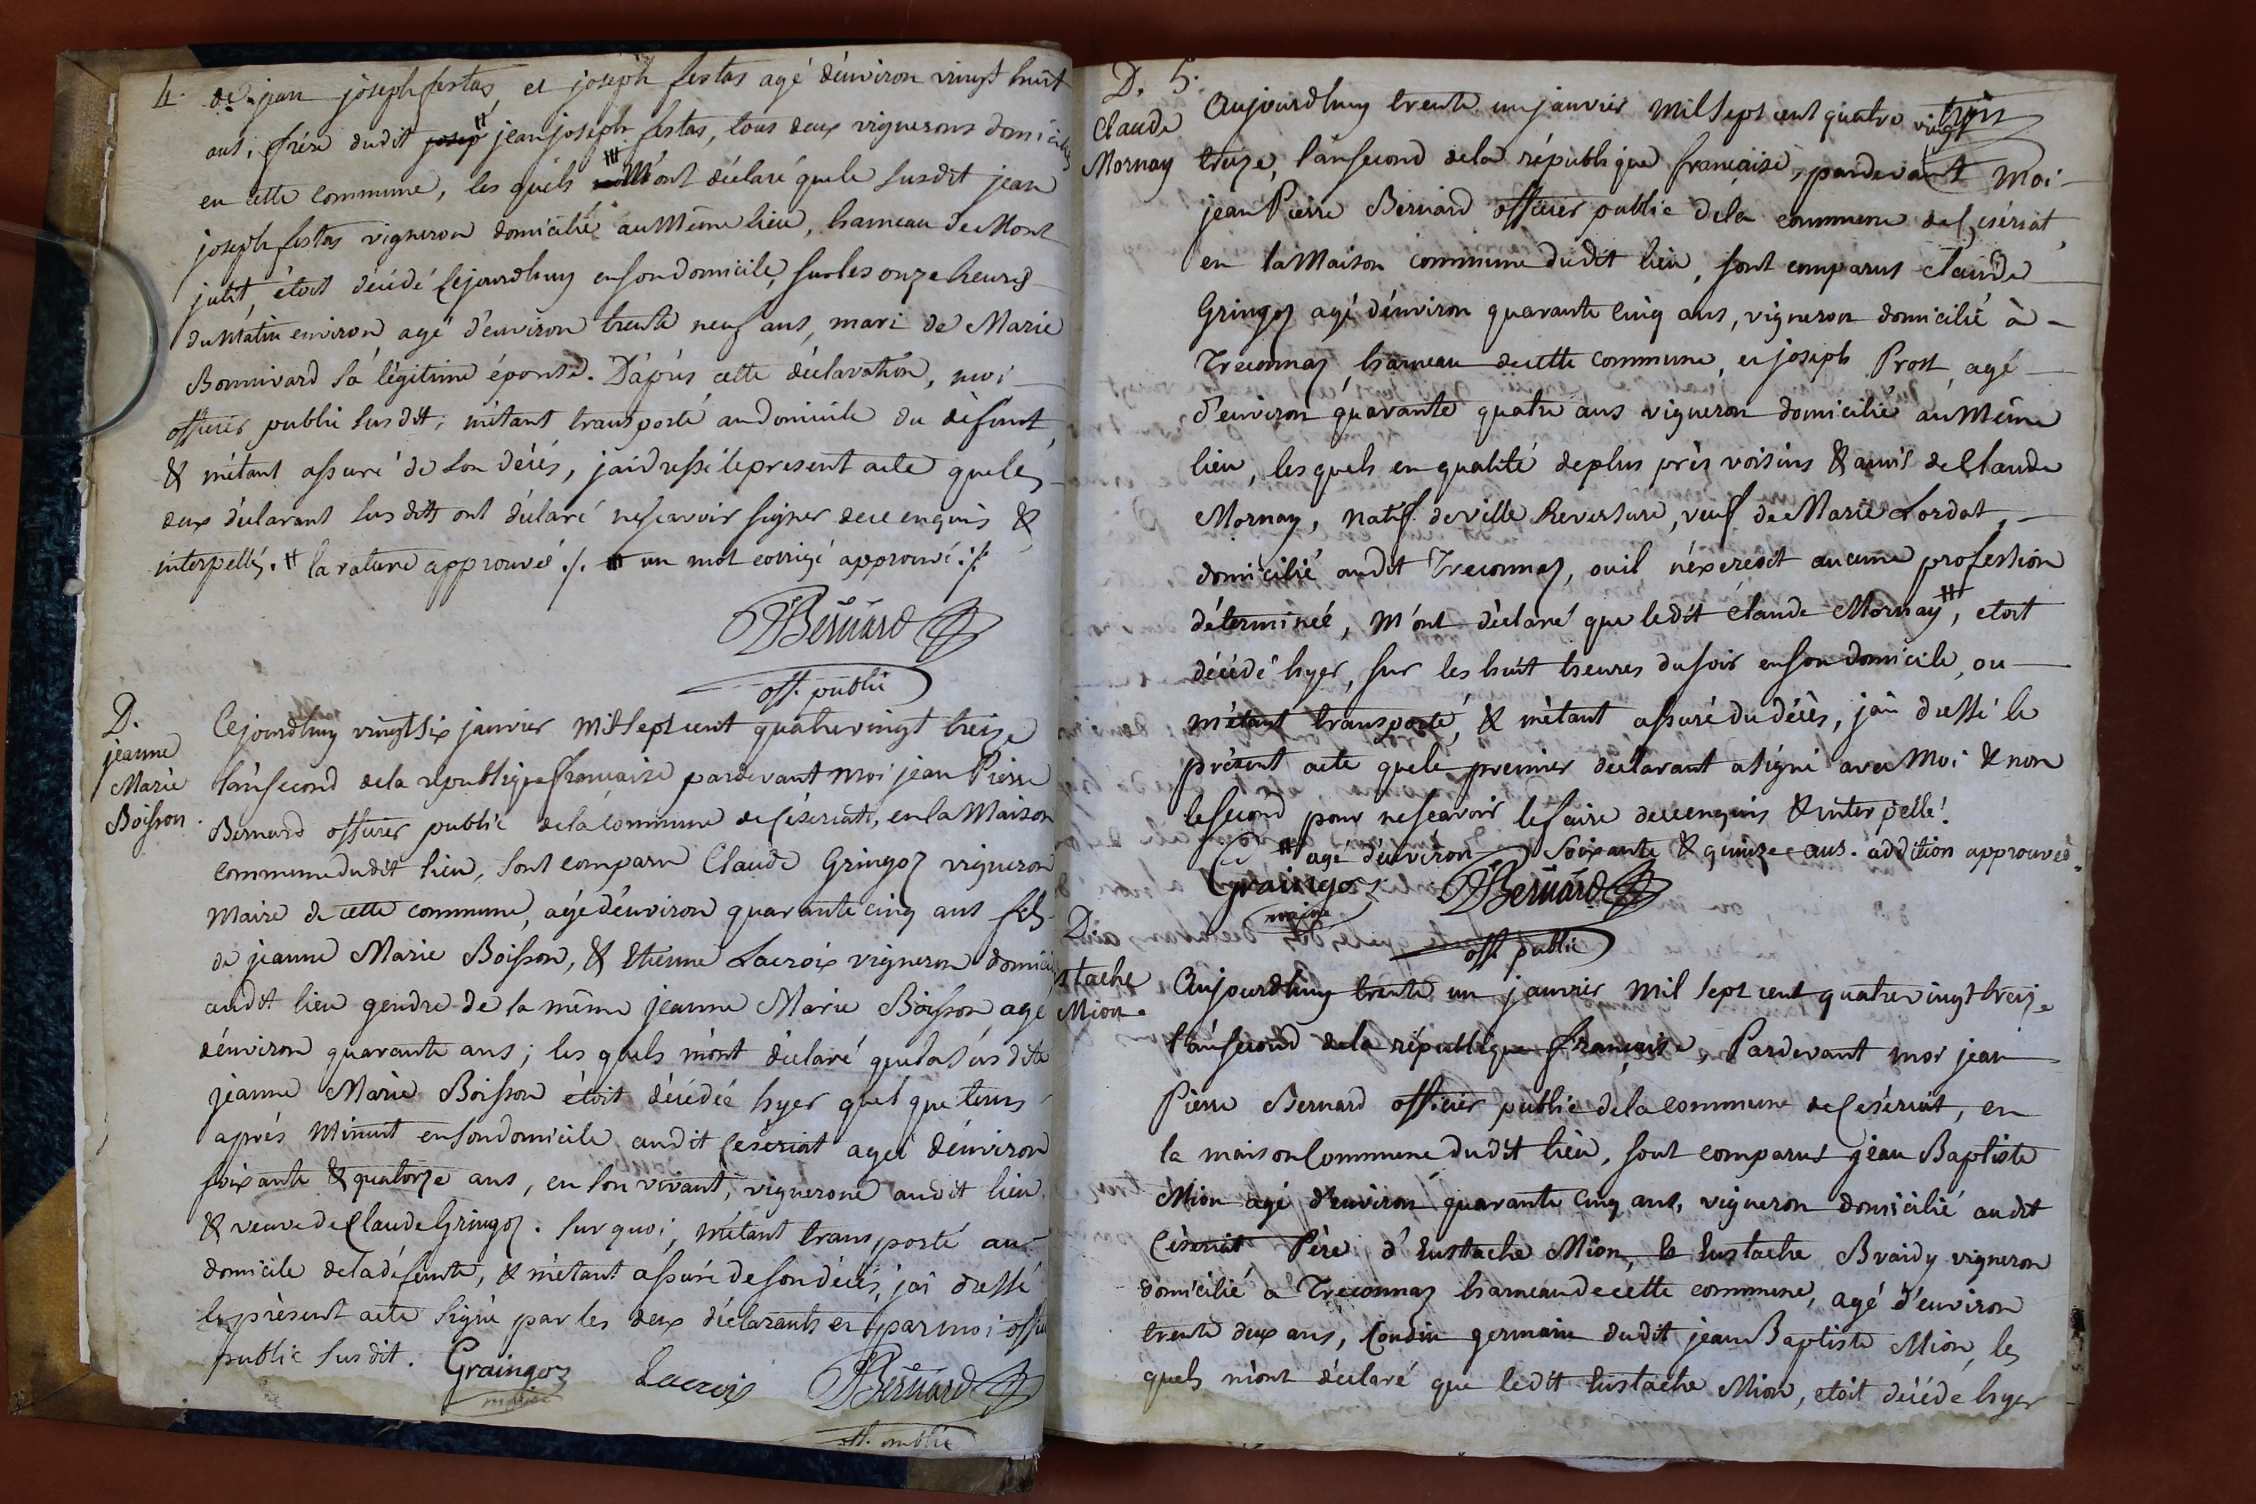 4.
de jean joseph festas, et joseph festas agé d'environ vingt huit
ans, frère dudit josep # jean joseph festas, tous deux vignerons domiciliés
en cette commune, les quels m'ont déclaré que le susdit jean
joseph festas vigneron domicilié au Même lieu, hameau de Mont
julit, étoit décédé cejourdhuy en son domicile, sur les onze heures
du Matin environ agé d'environ trente neuf ans, mari de Marie
Bonnivard sa légitime épouse. D'après cette déclaration, moi
officier public susdit, m'étant transporté au domicile du défunt,
& m'étant assuré de son décés, jai dressé le present acte que les
deux déclarant susdits ont déclaré ne scavoir signer de ce enquis &
interpellés. # la rature approuvé ./. ## un mot corrigé approuvé ./.
Bernard
off. public
D.
jeanne
Marie
Boisson.
Cejourdhuy vingt six janvier Mil sept cent quatre vingt treize
l'an second de la republique française pardevant moi jean Pierre
Bernard officier public de la commune de Céseriat, en la Maison
commune dudit lieu, sont comparu Claude Gringoz vigneron
Maire de cette commune, agé d'environ quarante cinq ans fils
de jeanne Marie Boisson, & Etienne Lacroix vigneron domicilié
audit lieu gendre de la même jeanne Marie Boisson agé
d'environ quarante ans; les quels m'ont déclaré que la susdite
jeanne Marie Boisson étoit décédée hyer quel que tems
après Minuit en son domicile audit Céseriat agée d'environ
soixante & quatorze ans, en son vivant, vignerone audit lieu
& veuve de Claude Gringoz. Sur quoi, m'étant transporté au
domicile de la défunte, & m'étant assuré de son décés, jai dressé
le présent acte signé par les deux déclarants et par moi offi
public susdit. Graingoz Lacroix Bernard
maire
off. public
D. 5.
Claude
Mornay
Aujourdhuy trente un janvier Mil sept cent quatre vingt trois
treize, l'an second de la république française, pardevant Moi
jean Pierre Bernard officier public de la commune de Céseriat,
en la Maison commune dudit lieu, sont comparus Claude
Gringoz agé d'environ quarante cinq ans, vigneron domicilié à
Treconnaz, hameau de cette commune, et joseph Prost, agé
d'environ quarante quatre ans vigneron domicilié au Même
lieu, les quels en qualité de plus près voisins & amis de Claude
Mornay, natif de ville Reversure, veuf de Marie Lordat,
domicilié audit Treconnaz, ou il n'éxerçoit aucune profession
déterminée, M'ont déclaré que ledit Claude Mornay ##, etoit
décédé hyer, sur les huit heures du soir en son domicile, ou
m'étant transporté, & m'étant assuré du décés, jai dressé le
présent acte que le premier declarant a signé avec Moi & non
le second pour ne scavoir le faire de ce enquis & interpellé.
## agé d'environ soixante & quinze ans. addition approuvée.
Graingoz Bernard
maire
off. public
D.
stache
Mion.
Aujourdhuy trente un janvier Mil sept cent quatre vingt treize
l'an second de la république française, Pardevant moi jean
Pierre Bernard officier public de la commune de Céseriat, en
la maison Commune dudit lieu, sont comparus jean Baptiste
Mion agé d'environ quarante cinq ans, vigneron domicilié audit
Céseriat Père d'Eustache Mion, & Eustache Braidy vigneron
domicilié à Treconnaz hameau de cette commune, agé d'environ
trente deux ans, Cousin germain dudit jean Baptiste Mion, les
quels m'ont déclaré que ledit Eustache Mion, etoit décédé hyer